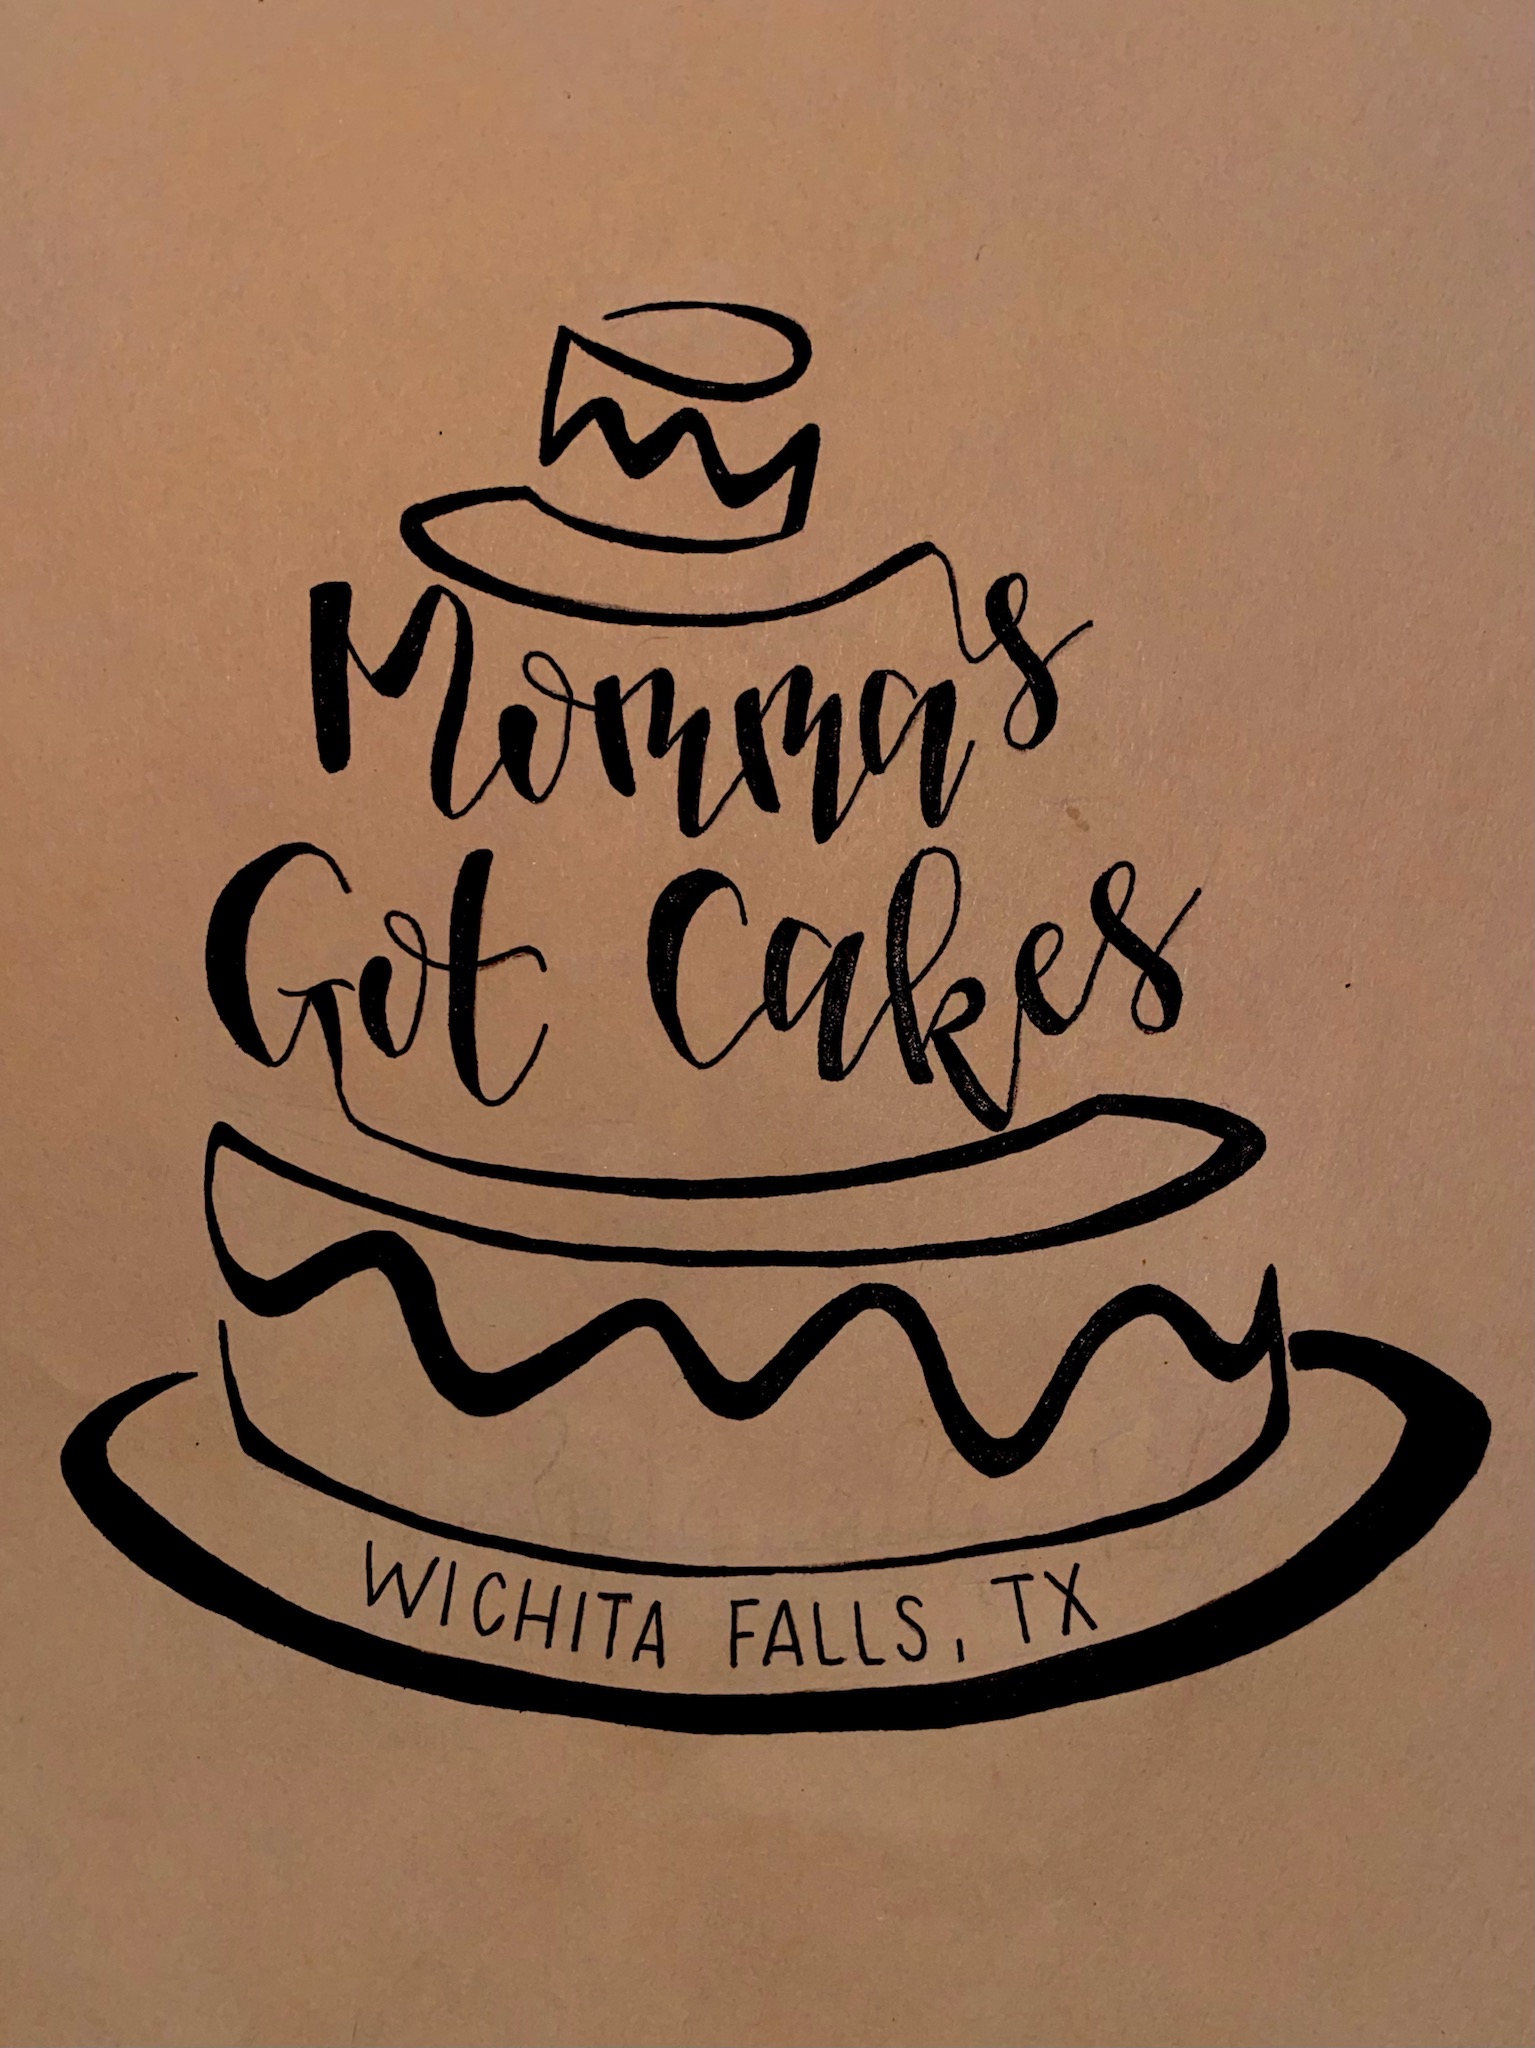 Momma's
Got Cakes
WICHITA FALLS, TX